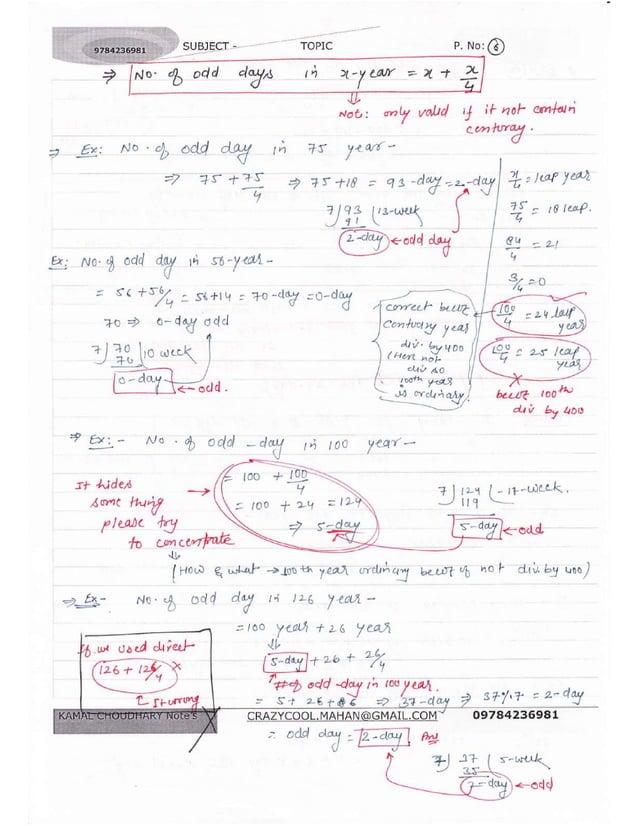 9784236981 SUBJECT - TOPIC P. No: 6
⇒ No. of odd days in x-year = x + x/4
Note: only valid if it not contain
centuray.
⇒ Ex: No. of odd day in 75 year -
⇒ 75 + 75/4 ⇒ 75+18 = 93-day = 2-day
7)93(13-week
91
2-day ← odd day
x/4 = leap year
75/4 = 18 leap.
84/4 = 21
3/4 = 0
100/4 = 24 leap year
100/4 = 25 leap year
×
becuz 100th
div by 400
Ex: No. of odd day in 56-year -
= 56 + 56/4 = 56+14 = 70-day = 0-day
70 ⇒ 0-day odd
7)70(10 week
70
0-day
← odd.
correct becuz
centuary year
div. by 400
(Here not
div so
100th year
is ordinary.
⇒ Ex:- No. of odd -day in 100 year -
It hides
some thing
please try
to concentrate
= 100 + 100/4
= 100 + 24 = 124
⇒ 5-day
7)124(-17-week.
119
5-day ← odd
(How & what → 100th year ordinary becuz of not div. by 400)
⇒ Ex- No. of odd day in 126 year -
= 100 year + 26 year
5-day + 26 + 26/4
# of odd -day in 100 year.
= 5 + 26 + 6 ⇒ 37-day ⇒ 37%7 = 2-day
If we used direct
126 + 126/4 ×
It wrong
KAMAL CHOUDHARY Note's CRAZYCOOL.MAHAN@GMAIL.COM 09784236981
= odd day = 2-day Ans
7)37(5-week
35
2-day ← odd